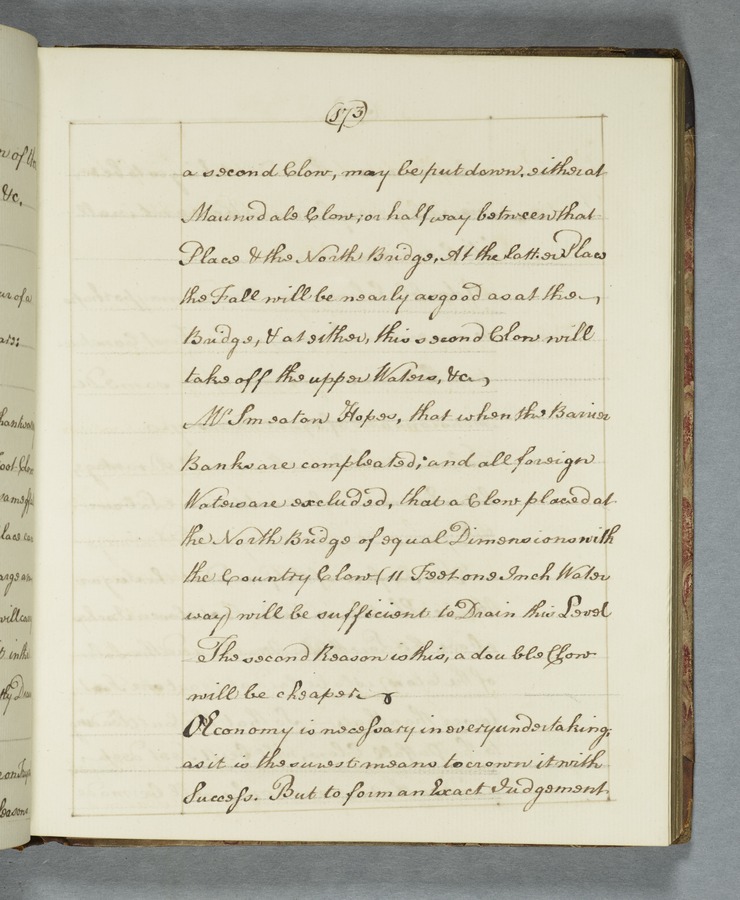 173
a second Clow, may be put down, either at
Maunsdale Clow; or half way between that
Place & the North Bridge, At the Latter Place
the Fall will be nearly as good as at the
Bridge, & at either, this second Clow will
take off the upper Waters, &c,
Mr Smeaton Hopes, that when the Barrier
Banks are compleated; and all foreign
Waters are excluded, that a Clow placed at
the North Bridge of equal Dimensions with
the Country Clow (11 Feet one Inch Water
way) will be sufficient to Drain this Level
The second Reason is this, a double Clow
will be cheaper
OEconomy is necessary in every undertaking,
as it is the surest means to crown it with
Success. But to form an Exact Judgement
&c.